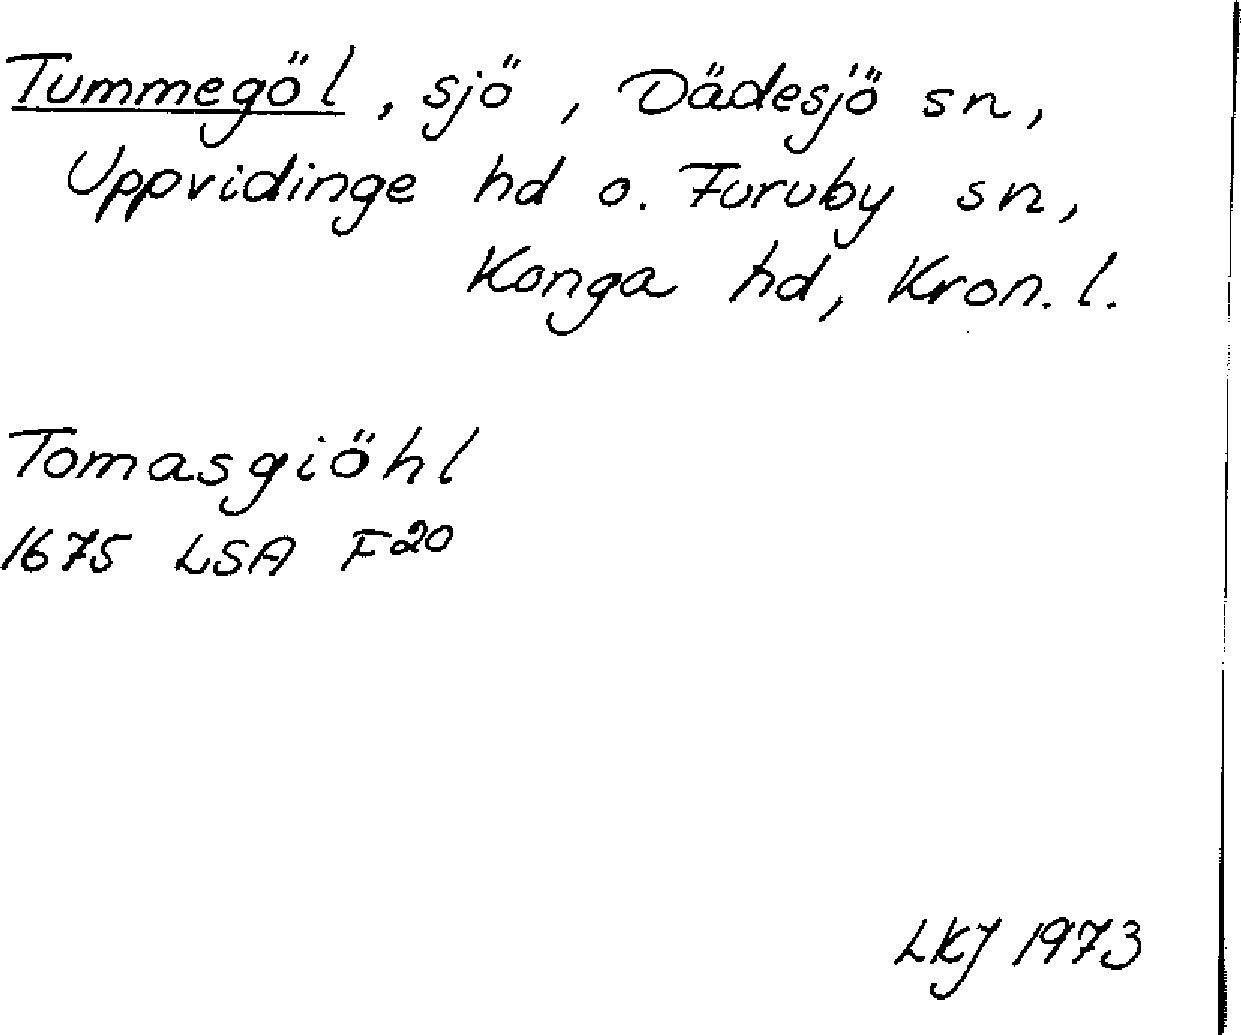 Tummegöl, sjö, Dädesjö sn,
Uppvidinge hd o. Furuby sn,
Konga hd, Kron. l.
Tomasgiöhl
1675 LSA F20
LKJ 1973